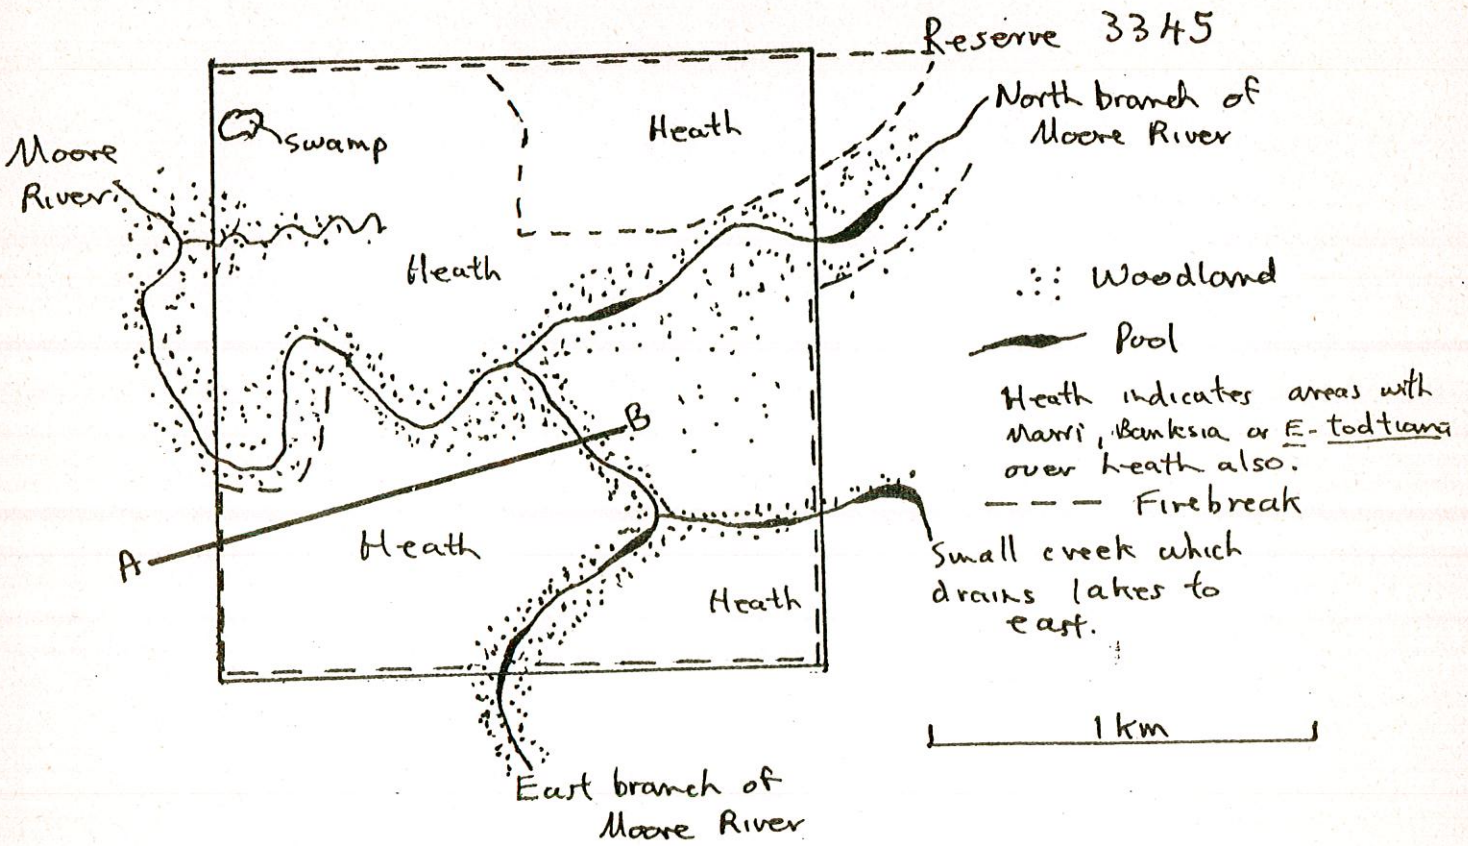 Reserve 3345
North branch of
Moore River
Heath
swamp
Moore
River
Heath
Woodland
Pool
Heath indicates areas with
Marri, Banksia or E. todtiana
over heath also.
Firebreak
B
A
Heath
Heath
Small creek which
drains lakes to
east.
1 km
East branch of
Moore River